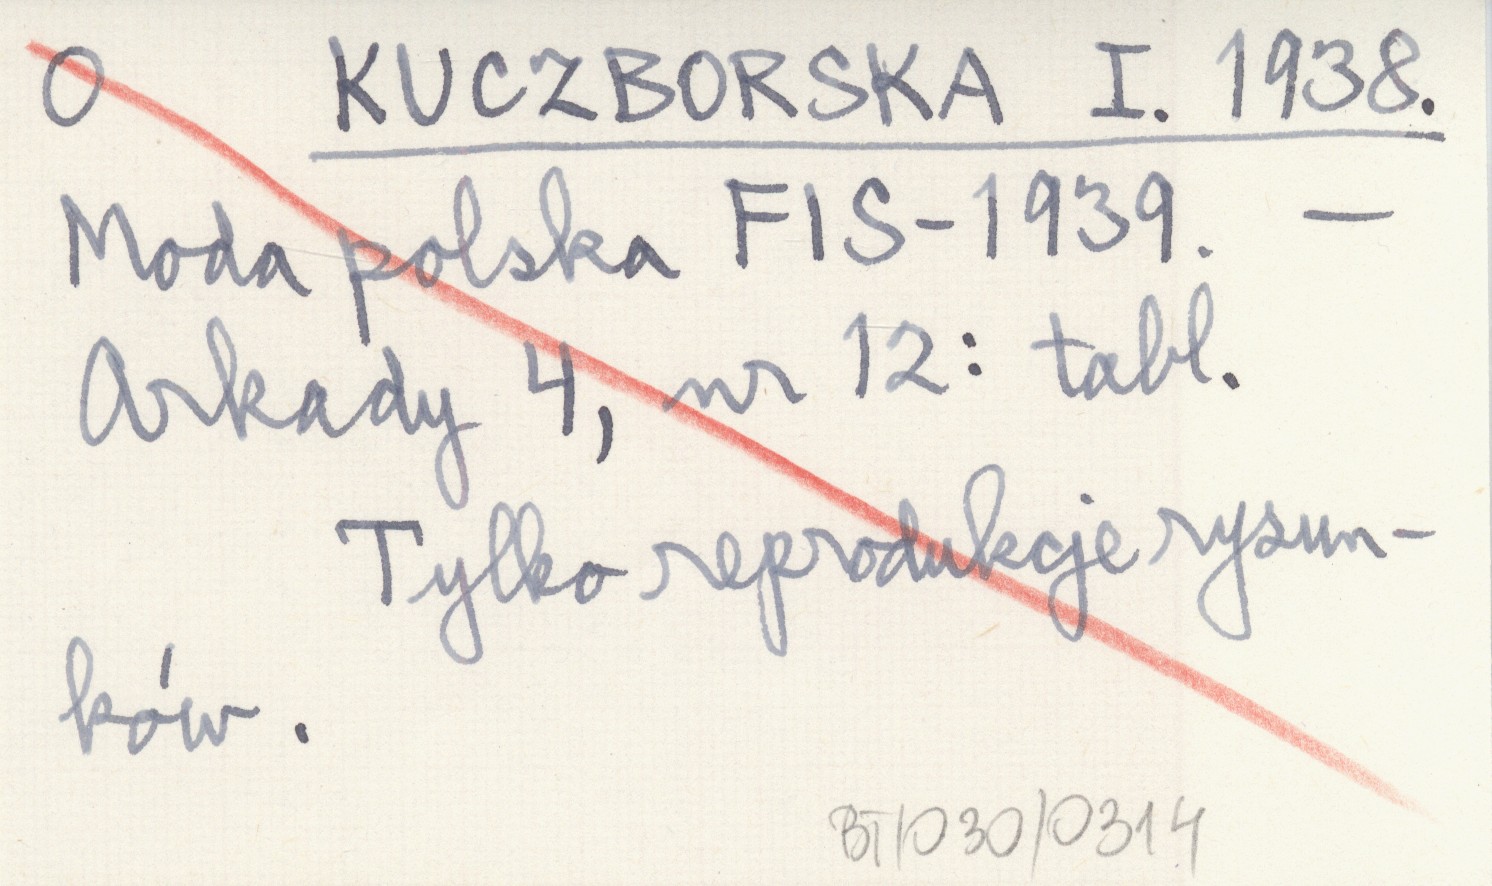 O KUCZBORSKA I. 1938.
Moda polska FIS-1939. —
Arkady 4, nr 12: tabl.
Tylko reprodukcje rysun-
ków.
BT/030/0314